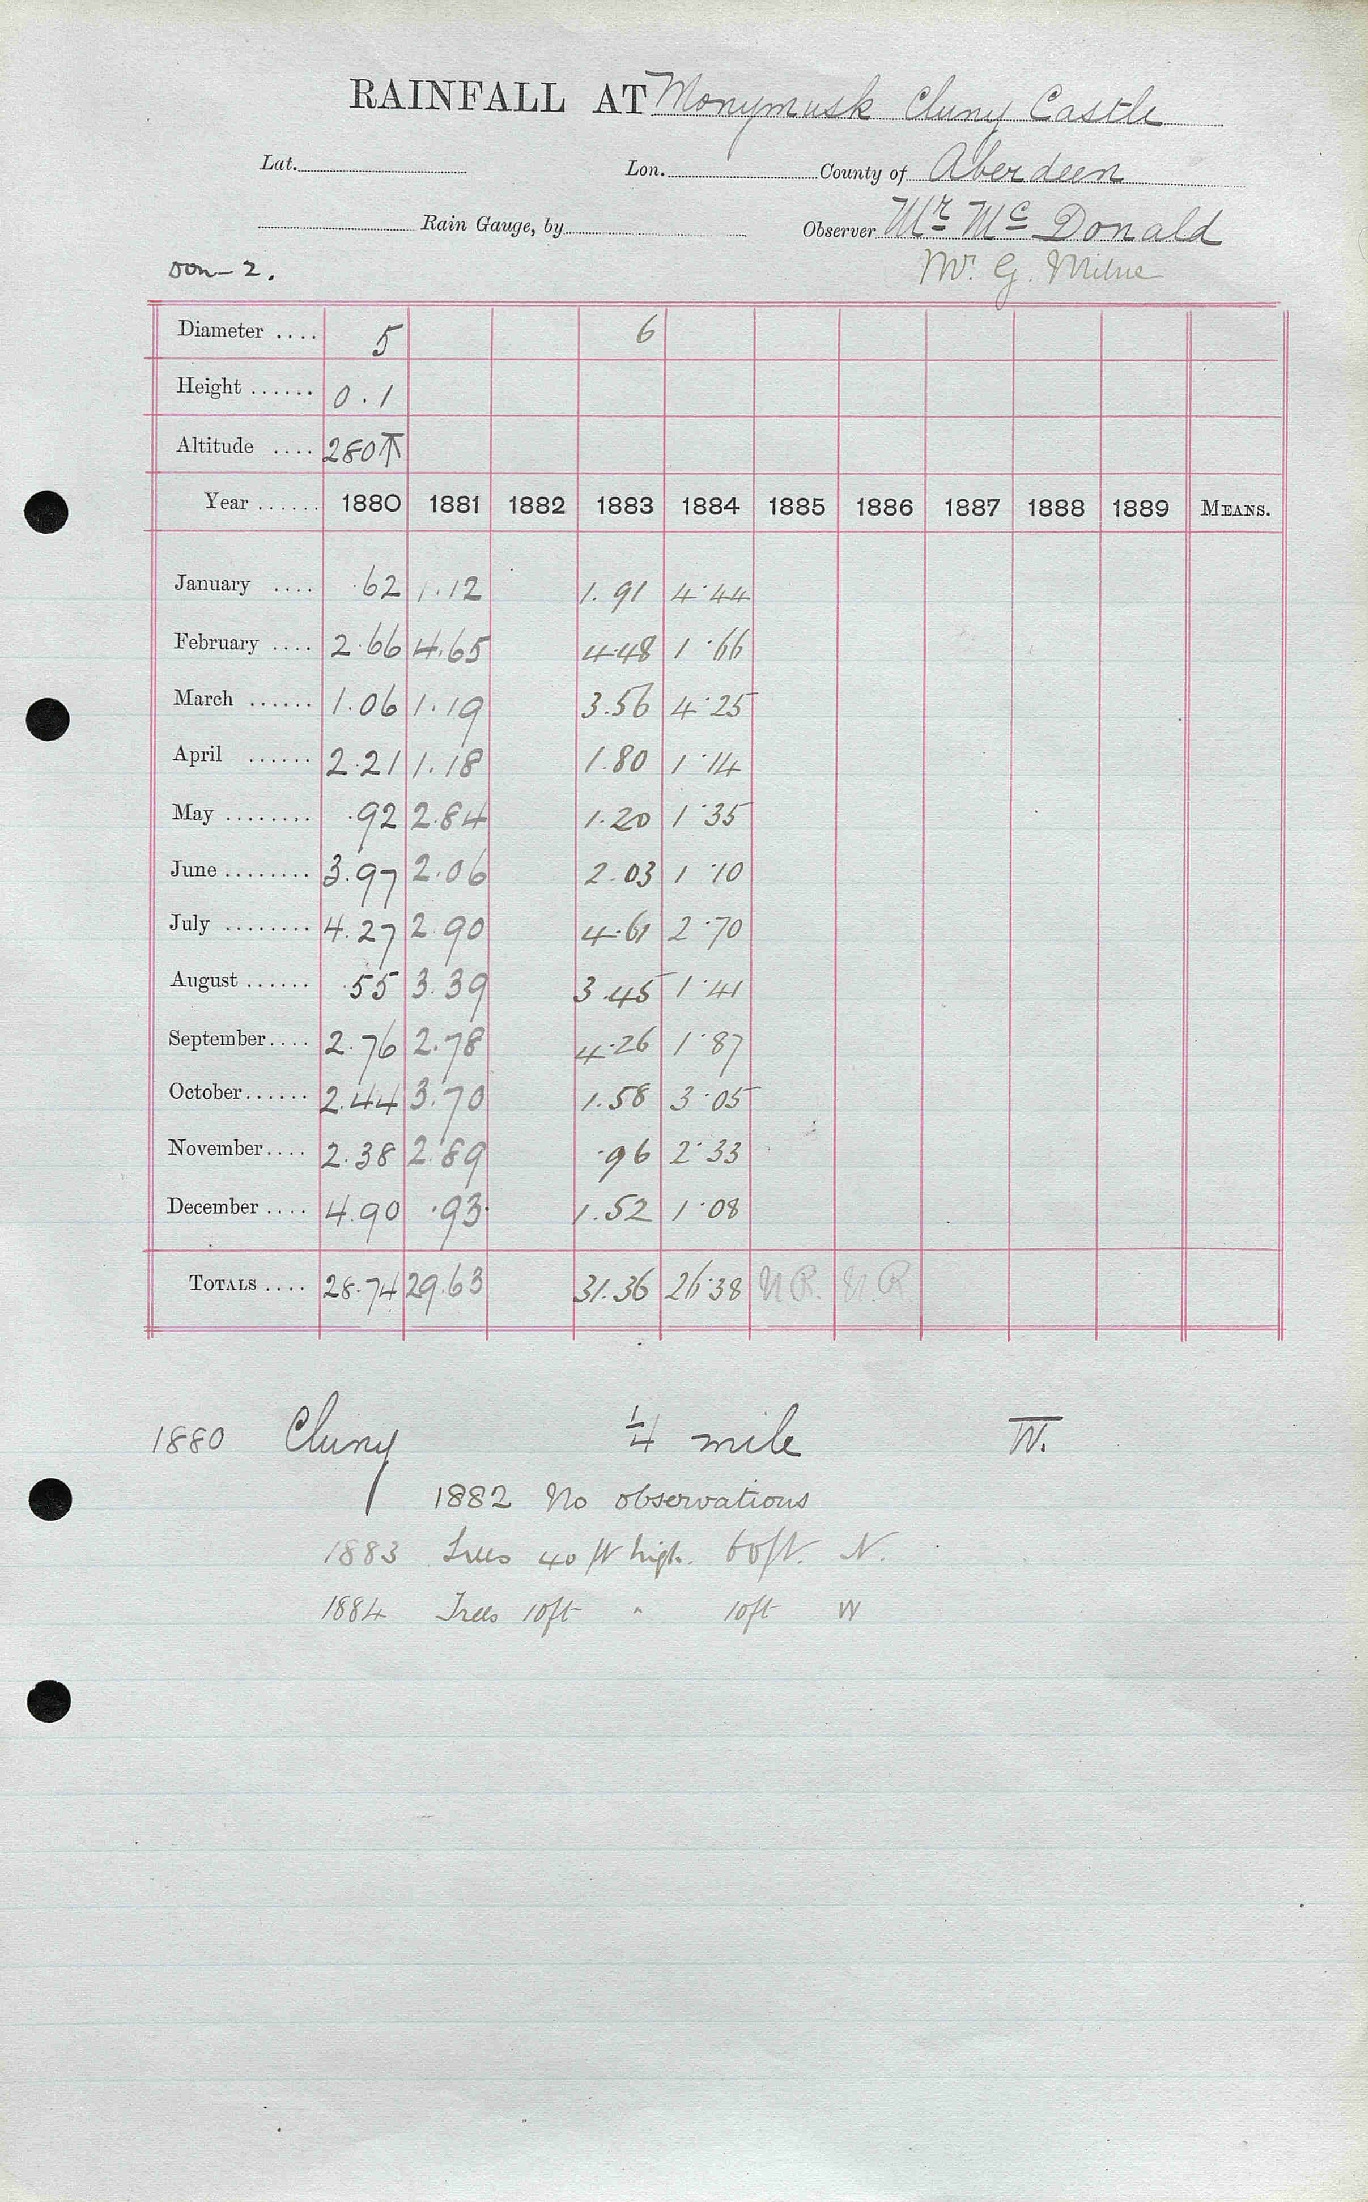 RAINFALL AT Monymusk Cluny Castle
Lat. Lon. County of Aberdeen
Rain Gauge, by Observer Mr Mc Donald
Don-2. Mr. G. Milne
Diameter .... 5 6
Height ...... 0.1
Altitude .... 280
Year ...... 1880 1881 1882 1883 1884 1885 1886 1887 1888 1889 MEANS.
January .... .62 1.12 1.91 4.44
February .... 2.66 4.65 4.48 1.66
March ...... 1.06 1.19 3.56 4.25
April ...... 2.21 1.18 1.80 1.14
May ........ .92 2.84 1.20 1.35
June ........ 3.97 2.06 2.03 1.10
July ........ 4.27 2.90 4.61 2.70
August ...... .55 3.39 3.45 1.41
September.... 2.76 2.78 4.26 1.87
October...... 2.44 3.70 1.58 3.05
November.... 2.38 2.89 .96 2.33
December .... 4.90 .93 1.52 1.08
TOTALS .... 28.74 29.63 31.36 26.38 N.R. N.R.
1880 Cluny 1/4 mile W.
1882 No observations
1883 Trees 40 ft high. 60ft. N.
1884 Trees 10ft " 10ft W